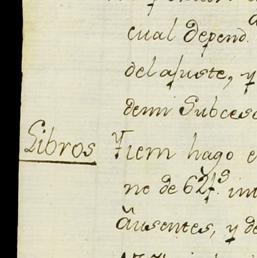 cual depend.
del ajuste, y
demi Subceso
Libros
Ytem hago e
ne de 62
ausentes, y de